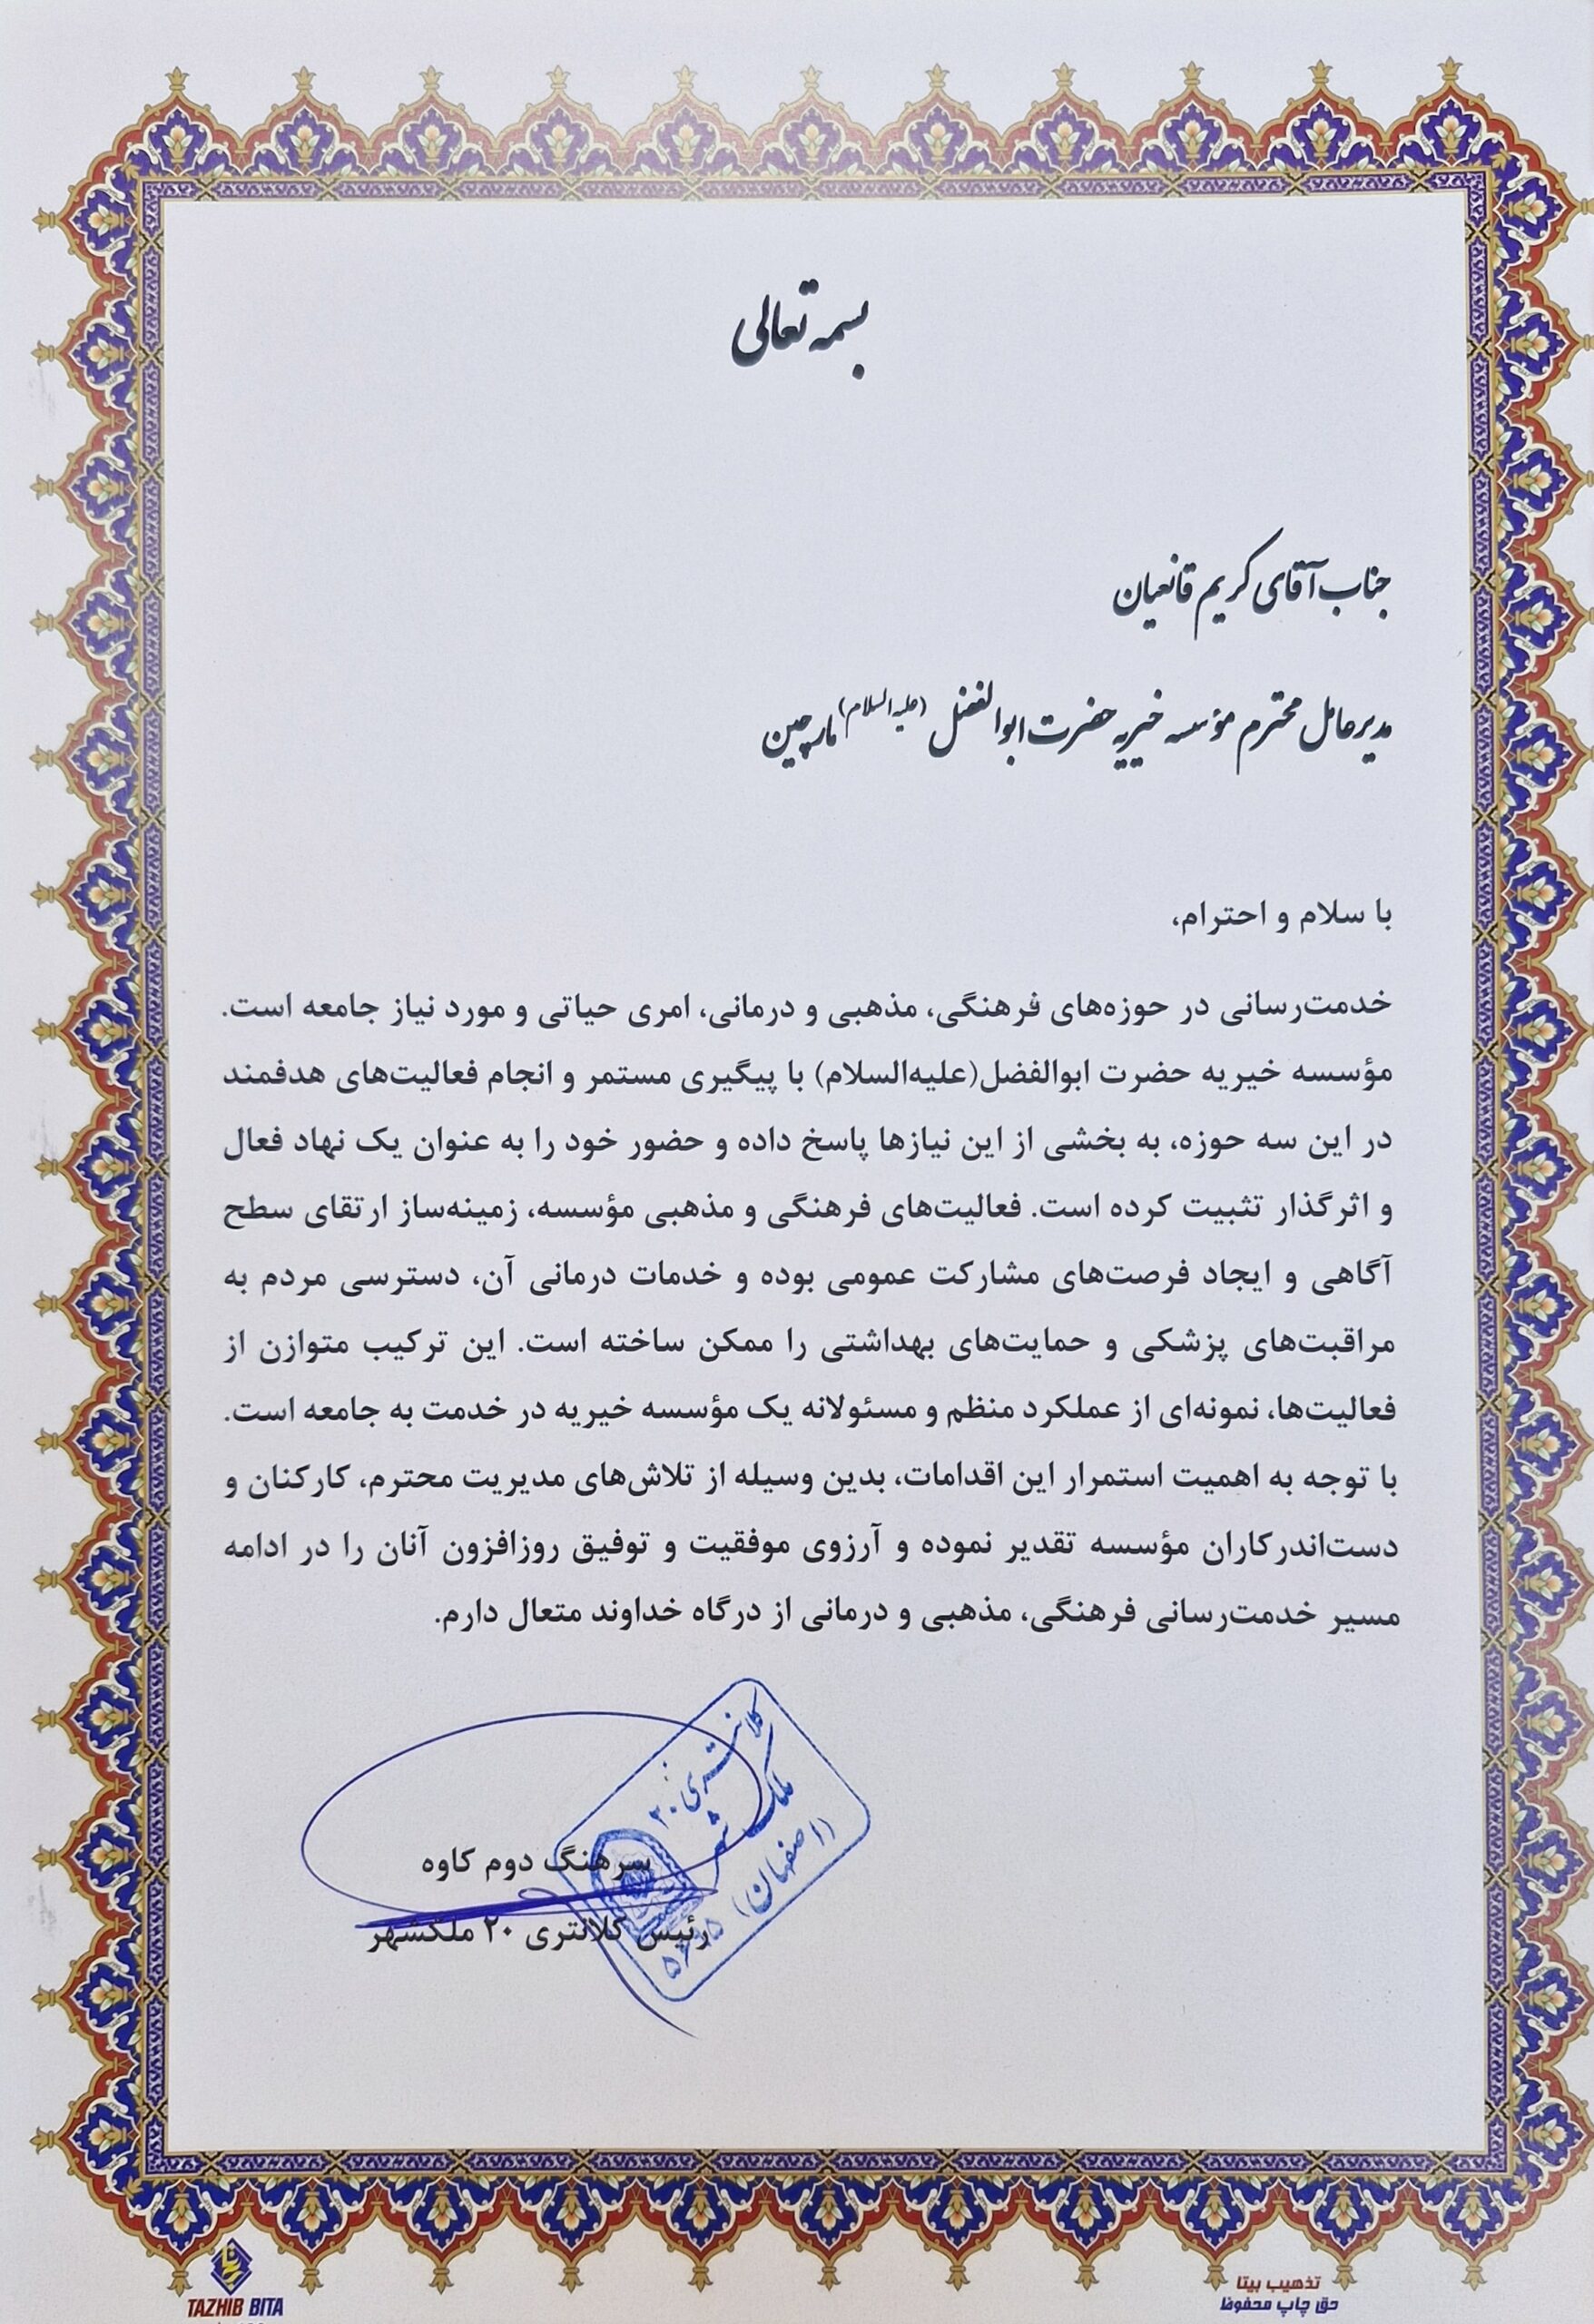 بسمه تعالی
جناب آقای کریم قانعیان
مدیرعامل محترم مؤسسه خیریه حضرت ابوالفضل (علیه‌السلام) مارچین
با سلام و احترام،
خدمت‌رسانی در حوزه‌های فرهنگی، مذهبی و درمانی، امری حیاتی و مورد نیاز جامعه است.
مؤسسه خیریه حضرت ابوالفضل(علیه‌السلام) با پیگیری مستمر و انجام فعالیت‌های هدفمند
در این سه حوزه، به بخشی از این نیازها پاسخ داده و حضور خود را به عنوان یک نهاد فعال
و اثرگذار تثبیت کرده است. فعالیت‌های فرهنگی و مذهبی مؤسسه، زمینه‌ساز ارتقای سطح
آگاهی و ایجاد فرصت‌های مشارکت عمومی بوده و خدمات درمانی آن، دسترسی مردم به
مراقبت‌های پزشکی و حمایت‌های بهداشتی را ممکن ساخته است. این ترکیب متوازن از
فعالیت‌ها، نمونه‌ای از عملکرد منظم و مسئولانه یک مؤسسه خیریه در خدمت به جامعه است.
با توجه به اهمیت استمرار این اقدامات، بدین وسیله از تلاش‌های مدیریت محترم، کارکنان و
دست‌اندرکاران مؤسسه تقدیر نموده و آرزوی موفقیت و توفیق روزافزون آنان را در ادامه
مسیر خدمت‌رسانی فرهنگی، مذهبی و درمانی از درگاه خداوند متعال دارم.
کلانتری ۲۰
ملک شهر
(اصفهان)
سرهنگ دوم کاوه
رئیس کلانتری ۲۰ ملکشهر
TAZHIB BITA
تذهیب بیتا
حق چاپ محفوظ